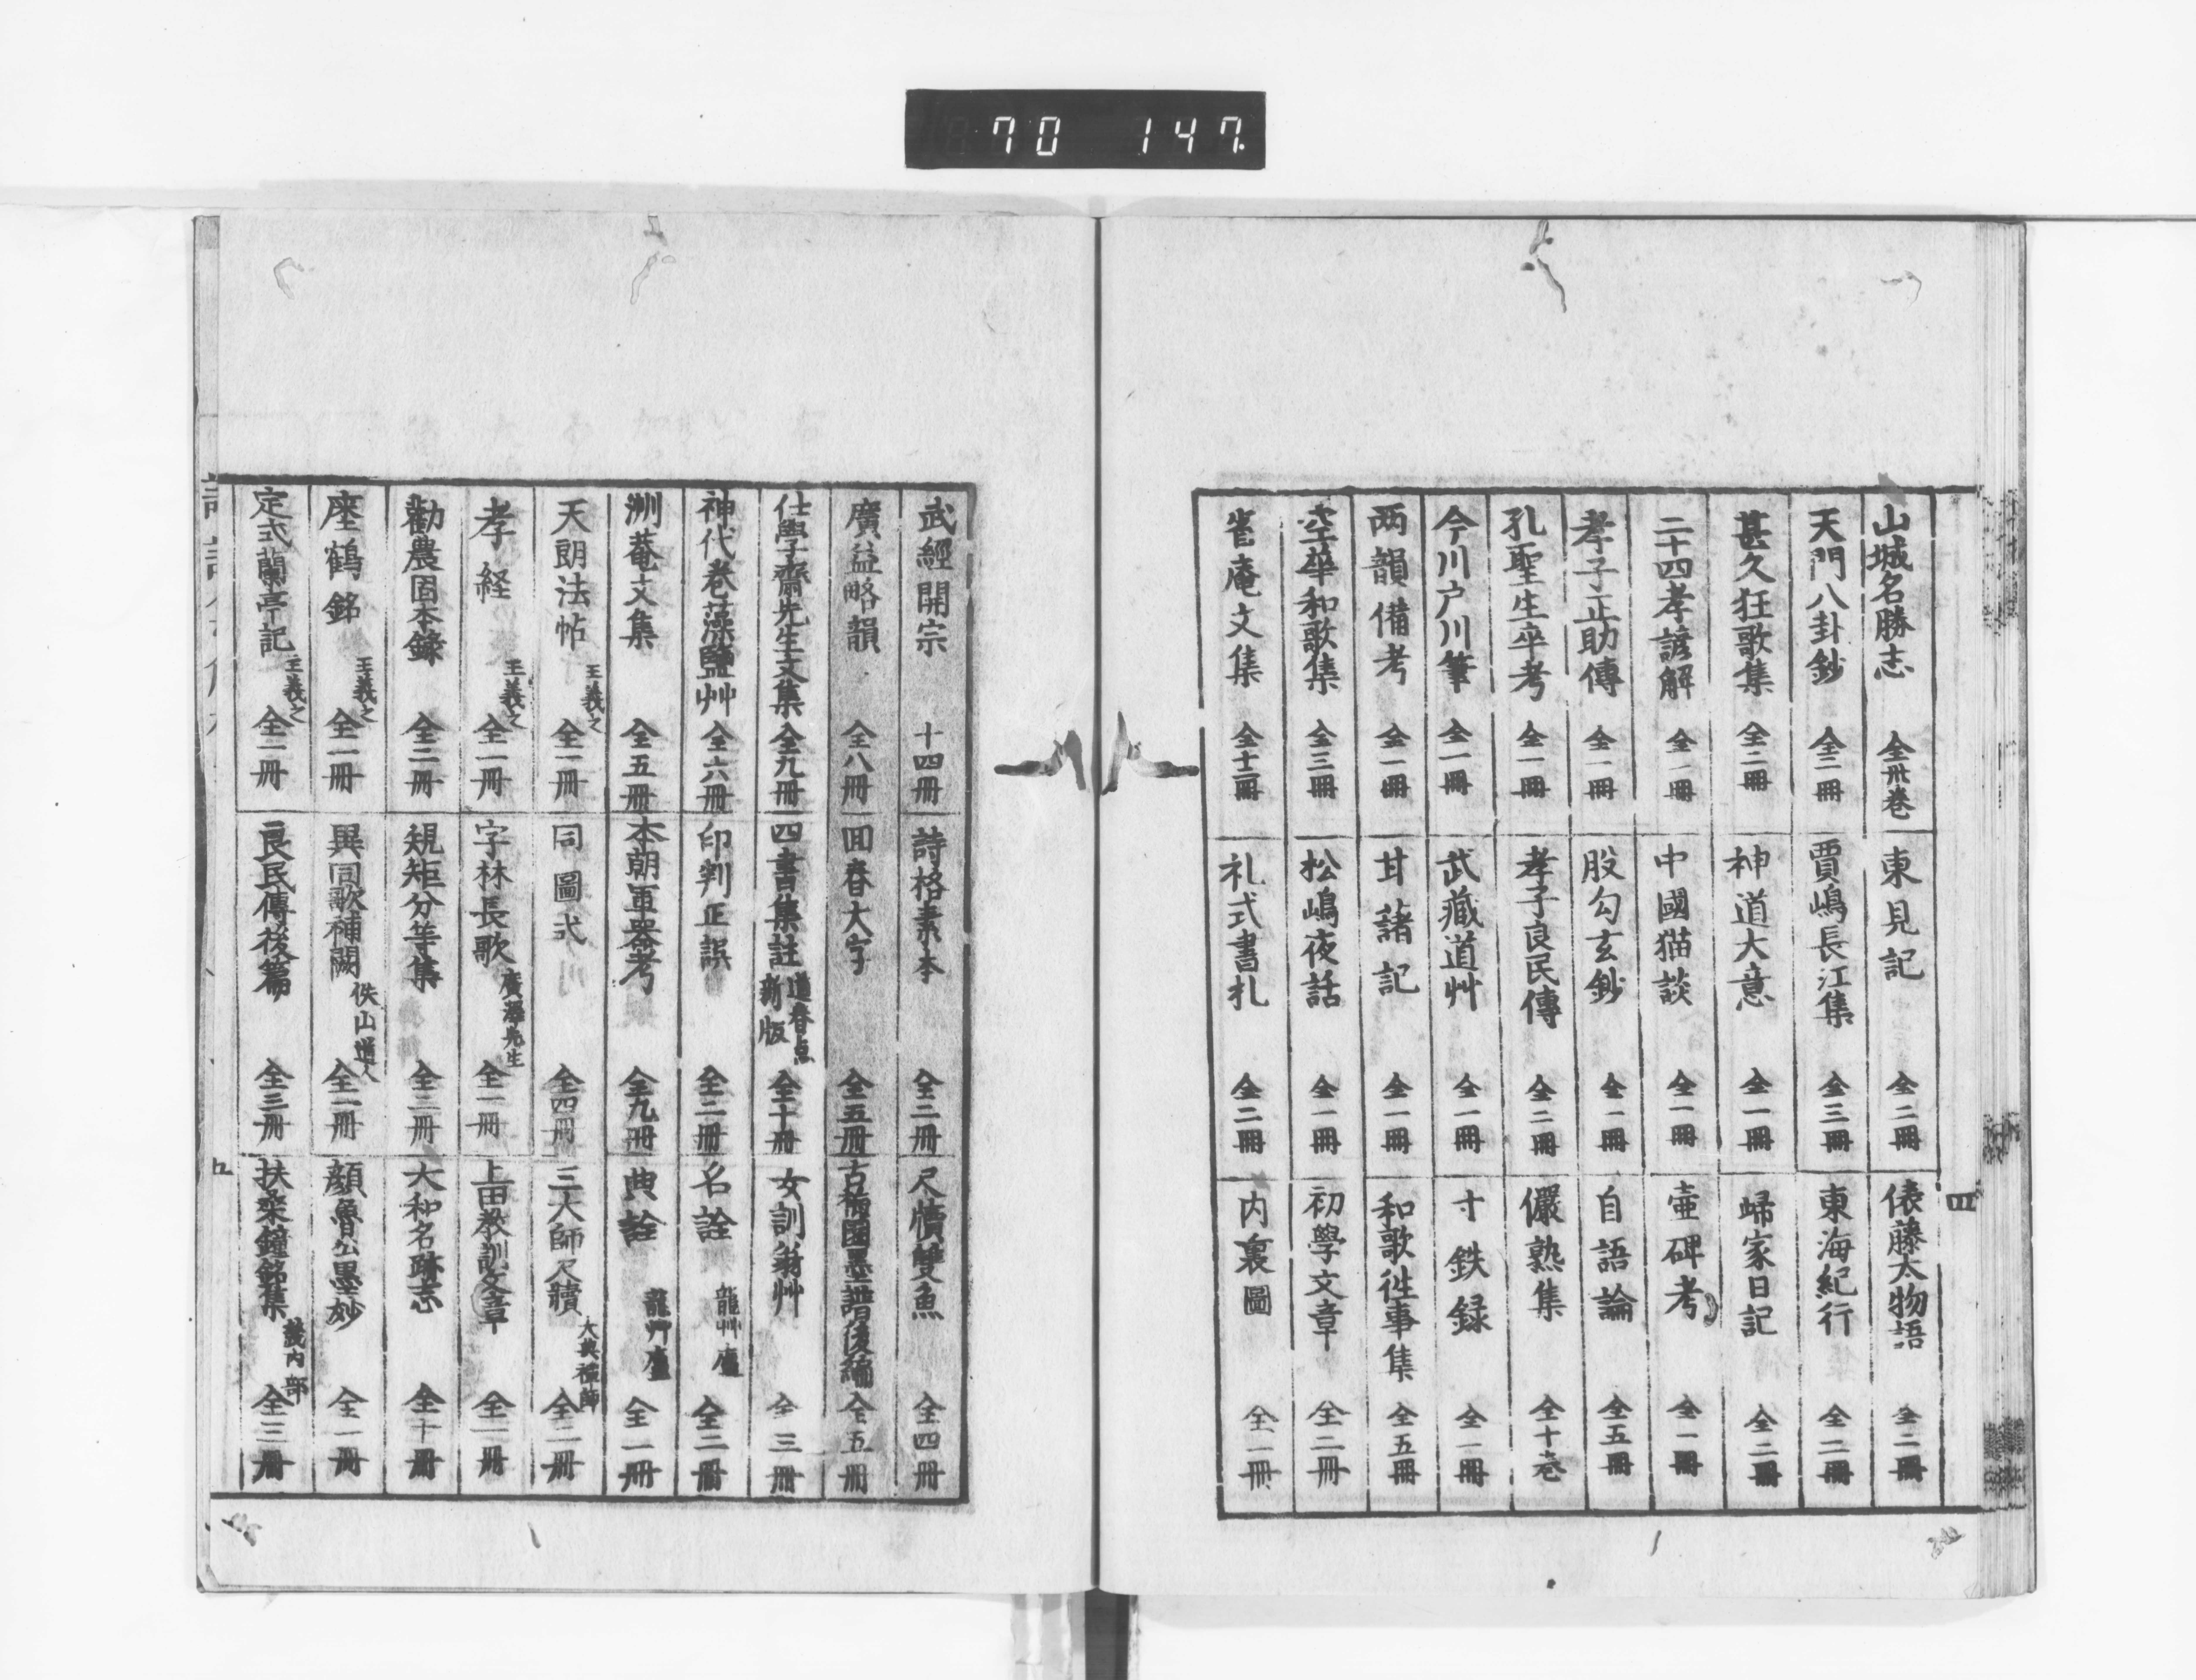 70 147.
山城名勝志 全卅巻
天門八卦鈔 全二冊
甚久狂歌集 全二冊
二十四孝諺解 全一冊
孝子正助傳 全一冊
孔聖生卒考 全一冊
今川戸川筆 全一冊
两韻備考 全一冊
空華和歌集 全三冊
省庵文集 全十二冊
東見記 全二冊
賈嶋長江集 全三冊
神道大意 全一冊
中國猫談 全一冊
股勾玄鈔 全一冊
孝子良民傳 全二冊
武藏道艸 全一冊
甘諸記 全一冊
松嶋夜話 全一冊
礼式書札 全二冊
俵藤太物語 全二冊
東海紀行 全二冊
帰家日記 全二冊
壷碑考 全一冊
自語論 全五冊
儼塾集 全十巻
寸鉄録 全一冊
和歌徃事集 全五冊
初學文章 全二冊
内裏圖 全一冊
四
武經開宗 十四冊
廣益略韻 全八冊
仕學齋先生文集 全九冊
神代巻藻鹽艸 全六冊
洲菴文集 全五冊
天朗法帖 王羲之 全一冊
孝経 王羲之 全一冊
勸農固本録 全二冊
座鶴銘 王羲之 全一冊
定式蘭亭記 王羲之 全一冊
詩格素本 全二冊
回春大字 全五冊
四書集註 道春点 新版 全十冊
印判正誤 全二冊
本朝軍器考 全九冊
同圖式 全四冊
字林長歌 廣澤先生 全一冊
規矩分等集 全二冊
異同歌補闕 佚山道人 全一冊
良民傳後篇 全三冊
尺牘雙魚 全四冊
古梅園墨譜後編 全五冊
女訓翁艸 全三冊
名詮 龍艸廬 全二冊
典詮 龍艸廬 全一冊
三大師尺牘 大典禅師 全二冊
上田教訓文章 全一冊
大和名跡志 全十冊
顔魯公墨妙 全一冊
扶桑鐘銘集 全三冊